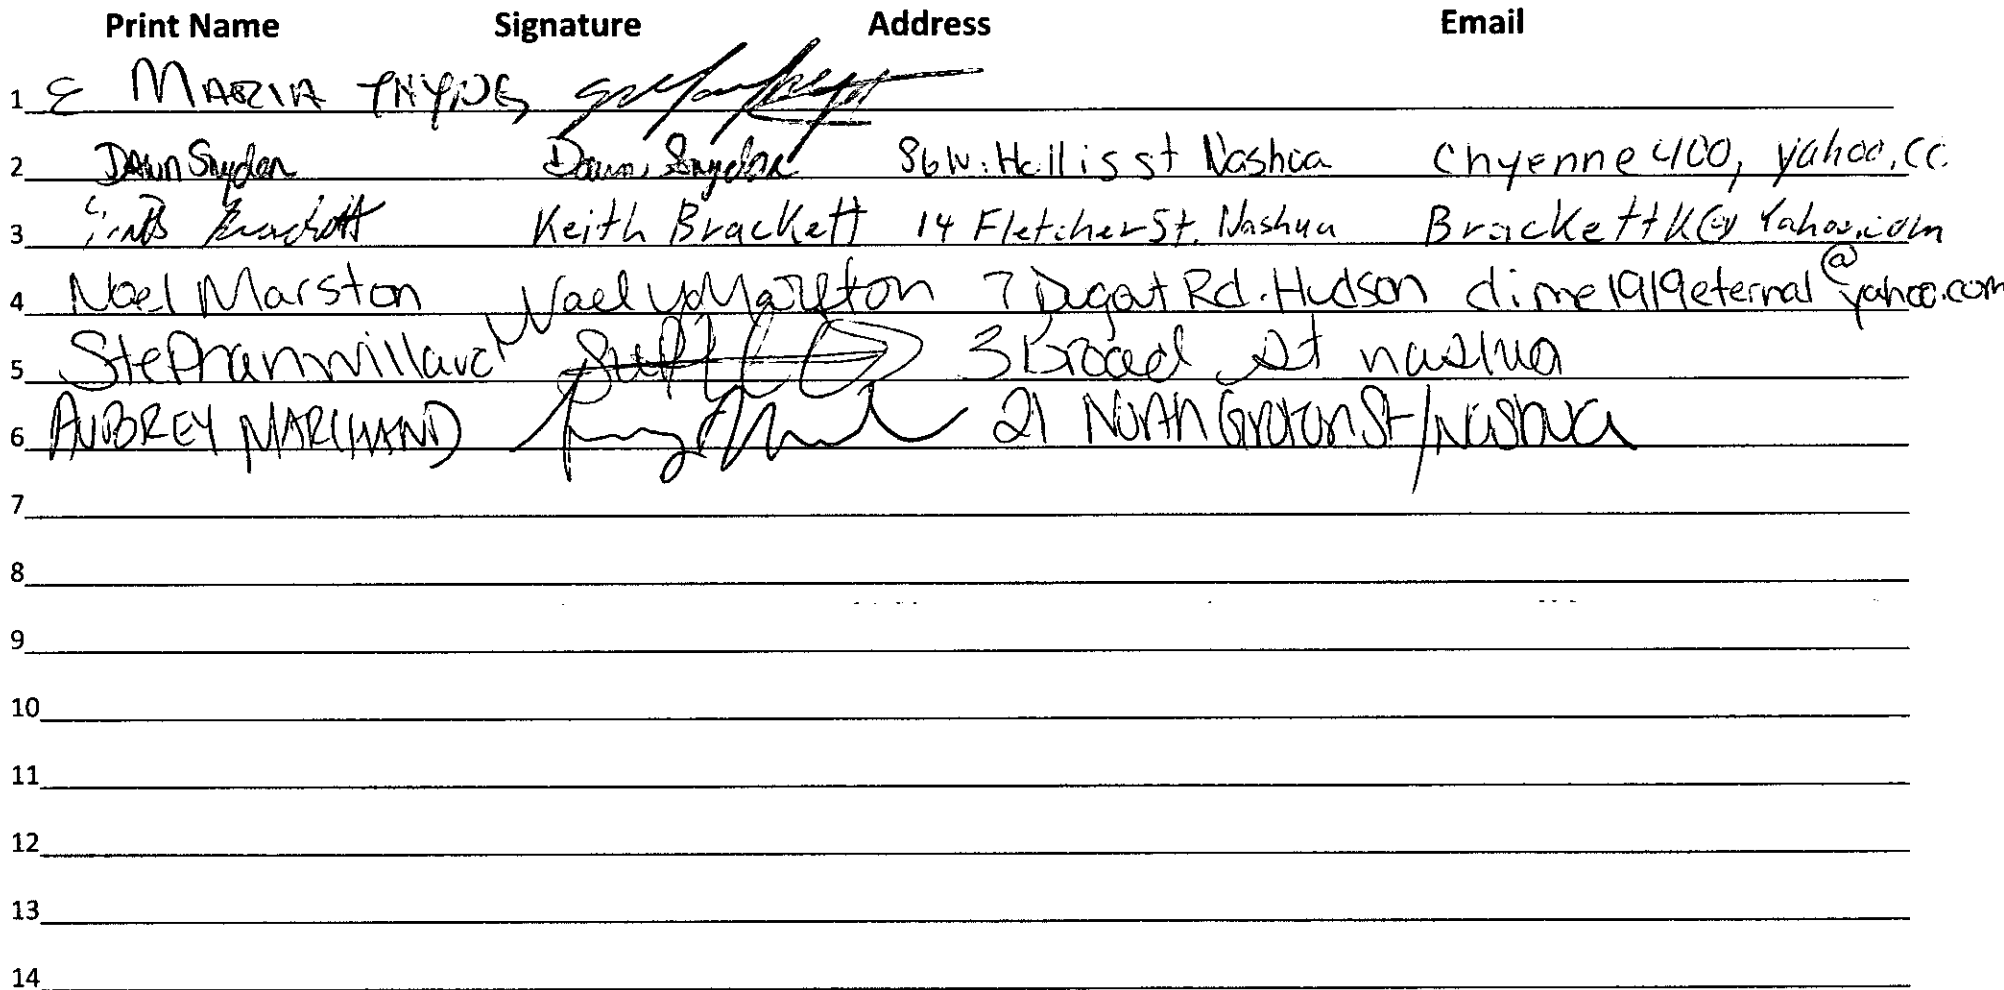 Print Name Signature Address Email
1 E MARIA THYNG
2 DAwn Snyder Dawn Snyder 86 W. Hollis st Nashua Chyenne 400, yahoo.cc
3 Brackett Keith Brackett 14 Fletcher St. Nashua BrackettK@Yahoo.com
4 Noel Marston Noel Marston 7 Dugat Rd. Hudson dime1919eternal@yahoo.com
5 Stephan willard 3 Broad St nashua
6 AUBREY MARCHAND 21 North Groton St/Nashua
7
8
9
10
11
12
13
14